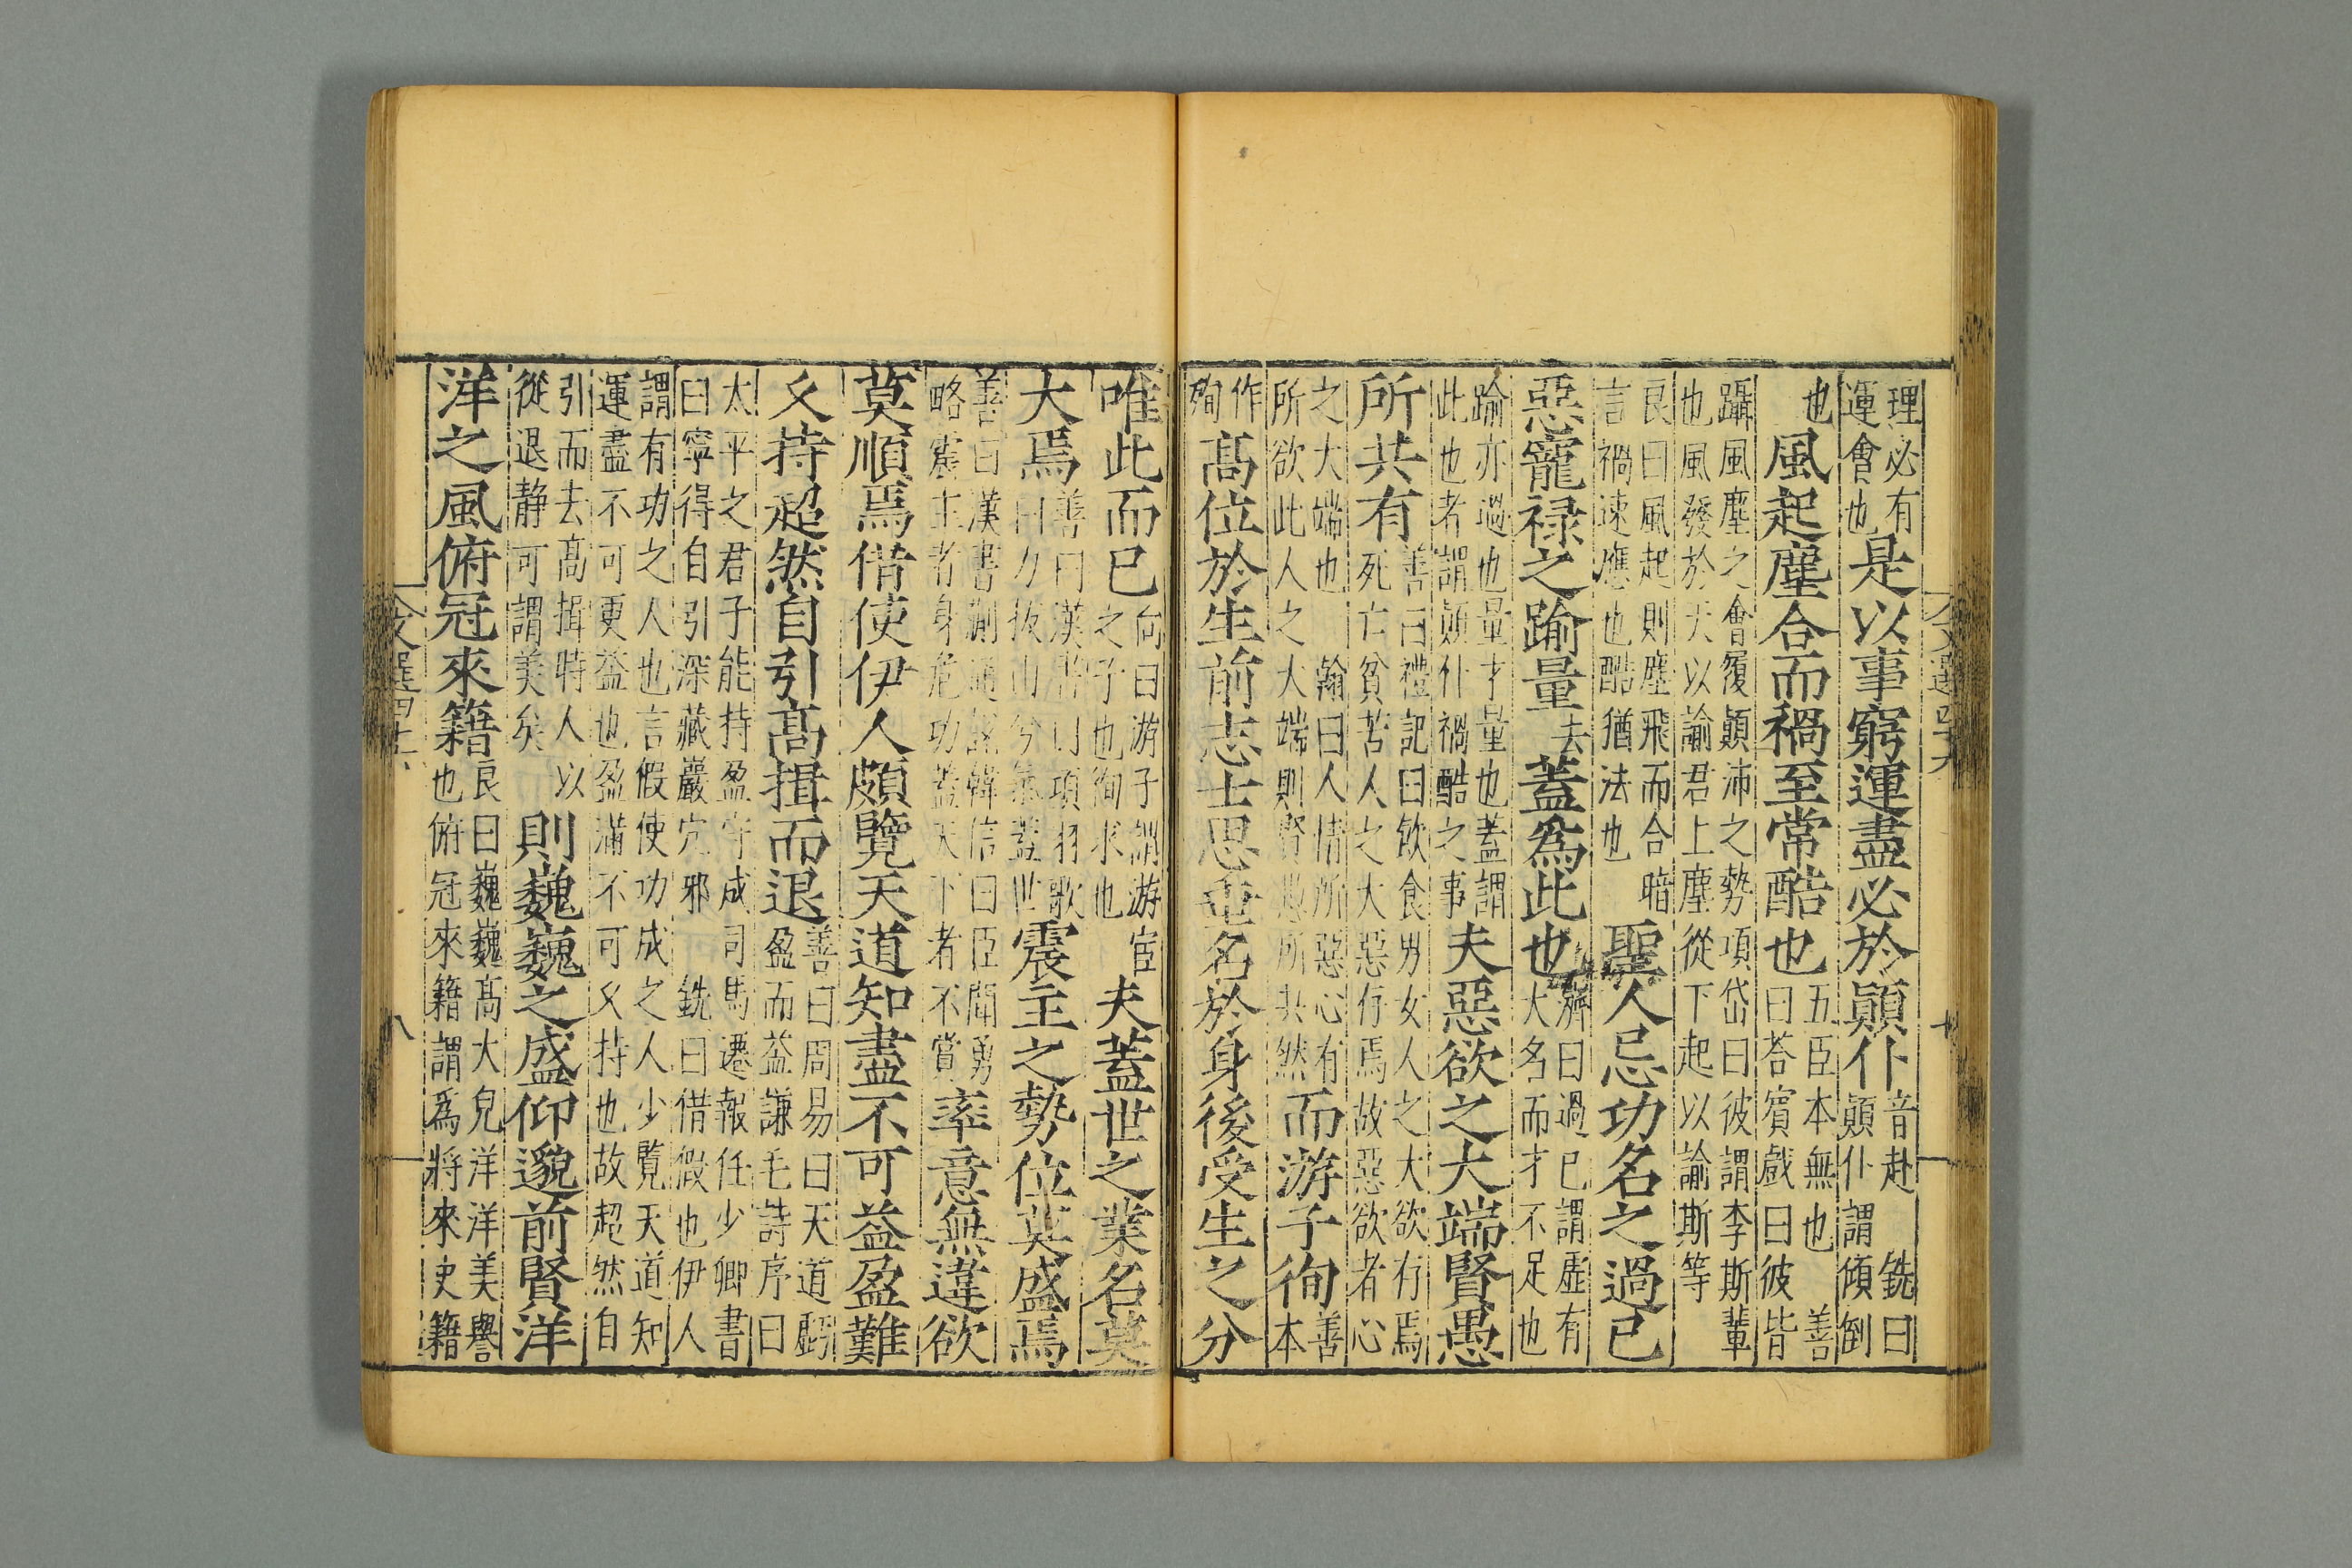 理必有運會也是以事窮運盡必於顚仆音赴 銑曰顚仆謂傾倒
也風起塵合而禍至常酷也五臣本無也 善曰荅賓戲曰彼皆
躡風塵之會履顚沛之勢項岱曰彼謂李斯輩也風發於天以諭君上塵從下起以諭斯等
良曰風起則塵飛而合暗言禍速應也酷猶法也聖人忌功名之過己
惡寵祿之踰量去蓋爲此也濟曰過已謂虛有大名而才不足也
踰亦過也量才量也蓋謂此也者謂顚仆禍酷之事夫惡欲之大端賢愚
所共有善曰禮記曰飲食男女人之大欲存焉死亡貧苦人之大惡存焉故惡欲者心
之大端也 翰曰人情所惡心有所欲此人之大端則賢愚所共然而游子徇善本
作殉高位於生前志士思垂名於身後受生之分
唯此而已向曰游子謂游宦之子也徇求也夫蓋世之業名莫
大焉善曰漢書曰項羽歌曰力拔山兮氣蓋世震主之勢位莫盛焉
善曰漢書蒯通說韓信曰臣聞勇略震主者身危功蓋天下者不賞率意無違欲
莫順焉借使伊人頗覽天道知盡不可益盈難
久持超然自引高揖而退善曰周易曰天道虧盈而益謙毛詩序曰
太平之君子能持盈守成司馬遷報任少卿書曰寧得自引深藏巖穴邪 銑曰借假也伊人
謂有功之人也言假使功成之人少覽天道知運盡不可更益也盈滿不可久持也故超然自
引而去高揖時人以從退静可謂美矣則巍巍之盛仰邈前賢洋
洋之風俯冠來籍良曰巍巍高大皃洋洋美譽也俯冠來籍謂爲將來史籍